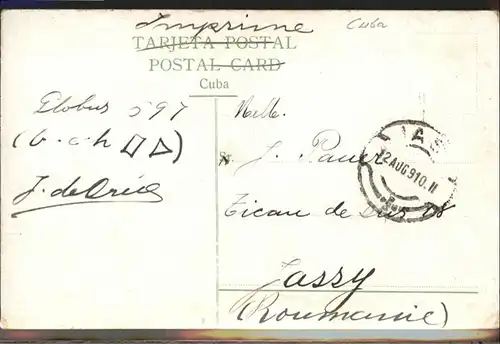 Imprimé
Cuba
TARJETA POSTAL
POSTAL CARD
Cuba
Globus 597
(b.c.h
J. de
Melle.
J. Pauer
Ticau de Sus 18
Jassy
(Roumanie)
IAS
12 AUG 910 11